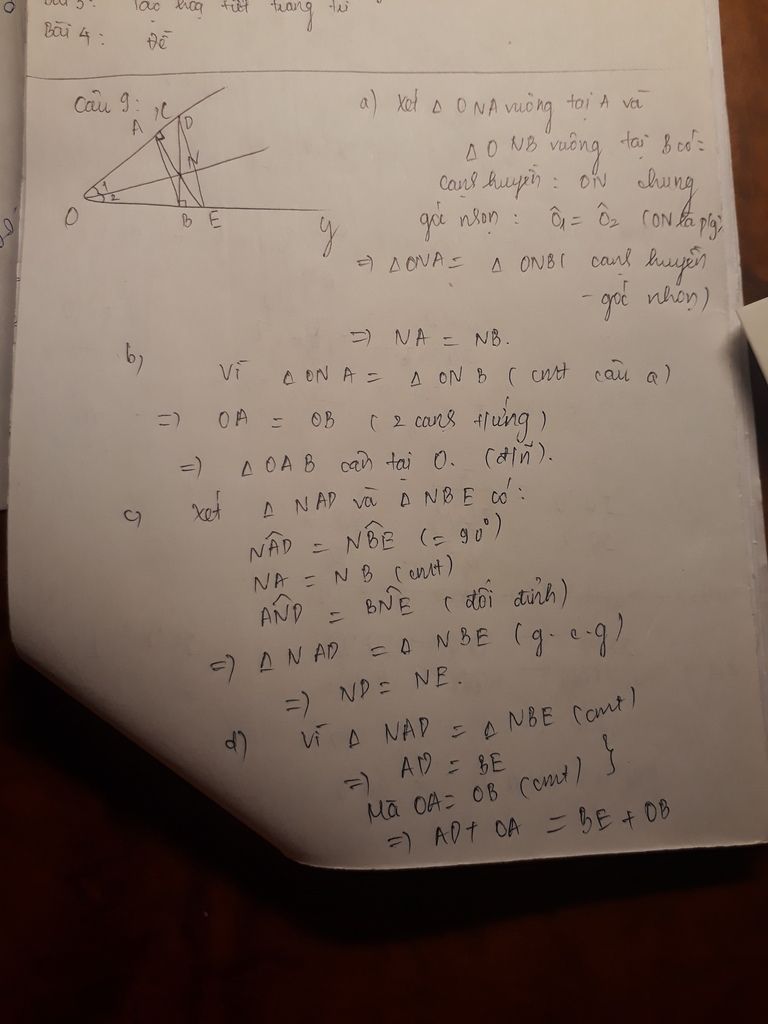 Bài 3: Tạo hoạ tiết trang trí
Bài 4: Đề
Câu 9:
x
A
D
N
1
2
O
B E
y
a) Xét Δ ONA vuông tại A và
Δ ONB vuông tại B có:
cạnh huyền: ON chung
góc nhọn: Ô1 = Ô2 (ON là p/g)
=> ΔONA = Δ ONB ( cạnh huyền
- góc nhọn)
=> NA = NB.
b,
Vì Δ ONA = Δ ONB ( cmt câu a)
=> OA = OB ( 2 cạnh t/ứng)
=> Δ OAB cân tại O. (đ/n).
c, Xét Δ NAD và Δ NBE có:
NÂD = NB̂E (= 90°)
NA = NB (cmt)
AN̂D = BN̂E ( đối đỉnh)
=> Δ NAD = Δ NBE (g.c.g)
=> ND = NE.
d) Vì Δ NAD = Δ NBE (cmt)
=> AD = BE
Mà OA = OB (cmt) }
=> AD + OA = BE + OB